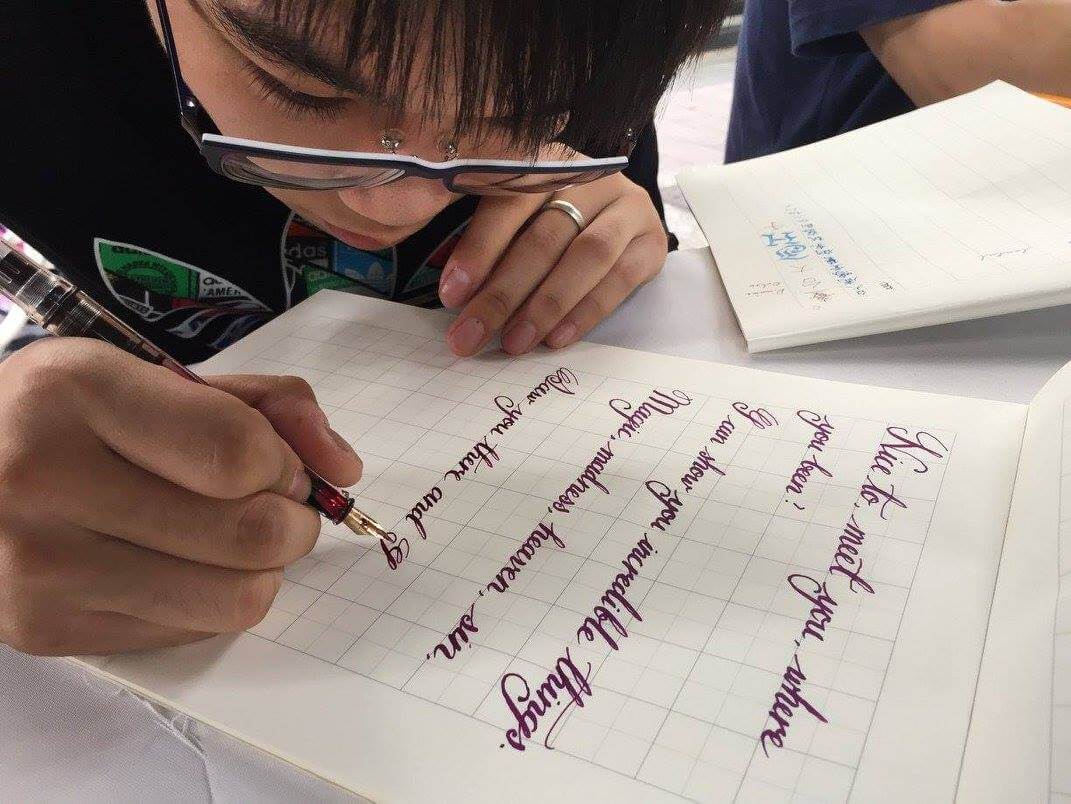 Nice to meet you, where
you been?
I can show you incredible things.
Magic, madness, heaven, sin.
Saw you there and I
adidas